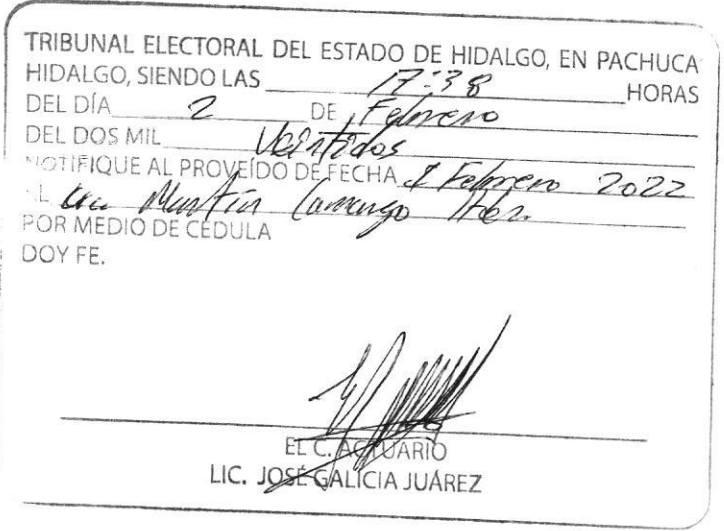 TRIBUNAL ELECTORAL DEL ESTADO DE HIDALGO, EN PACHUCA
HIDALGO, SIENDO LAS 17:38 HORAS
DEL DÍA 2 DE Febrero
DEL DOS MIL Veintidos
NOTIFIQUE AL PROVEÍDO DE FECHA 1 Febrero 2022
AL Martín Camargo Hdz.
POR MEDIO DE CEDULA
DOY FE.
EL C. ACTUARIO
LIC. JOSÉ GALICIA JUÁREZ